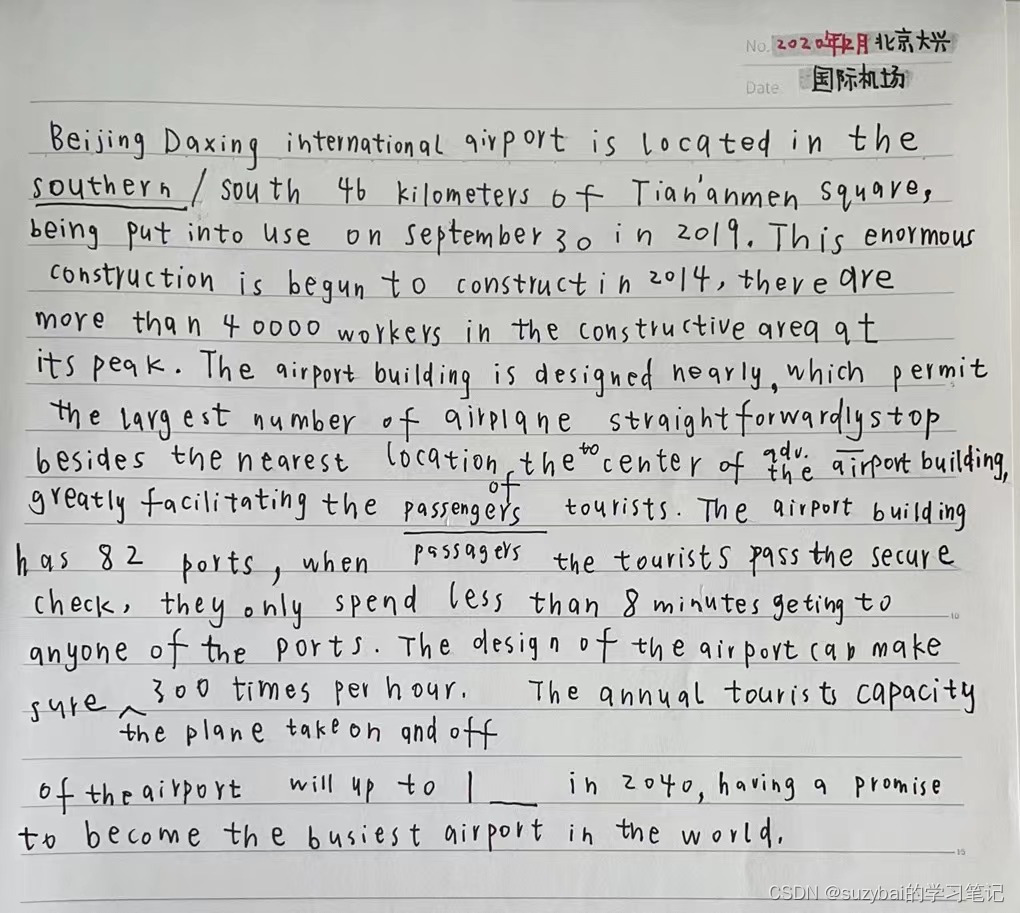 No. 2020年12月北京大兴
Date 国际机场
Beijing Daxing international airport is located in the
southern / south 46 kilometers of Tian'anmen square,
being put into use on september 30 in 2019. This enormous
construction is begun to construct in 2014, there are
more than 40000 workers in the constructive area at
its peak. The airport building is designed nearly, which permit
the largest number of airplane straight forwardly stop
besides the nearest location, the to center of adv. the airport building,
of
greatly facilitating the passengers tourists. The airport building
has 82 ports, when passagers the tourists pass the secure
check, they only spend less than 8 minutes geting to
10
anyone of the ports. The design of the airport can make
sure ^ 300 times per hour. The annual tourists capacity
the plane take on and off
of the airport will up to 1__ in 2040, having a promise
to become the busiest airport in the world.
15
CSDN @suzybai的学习笔记